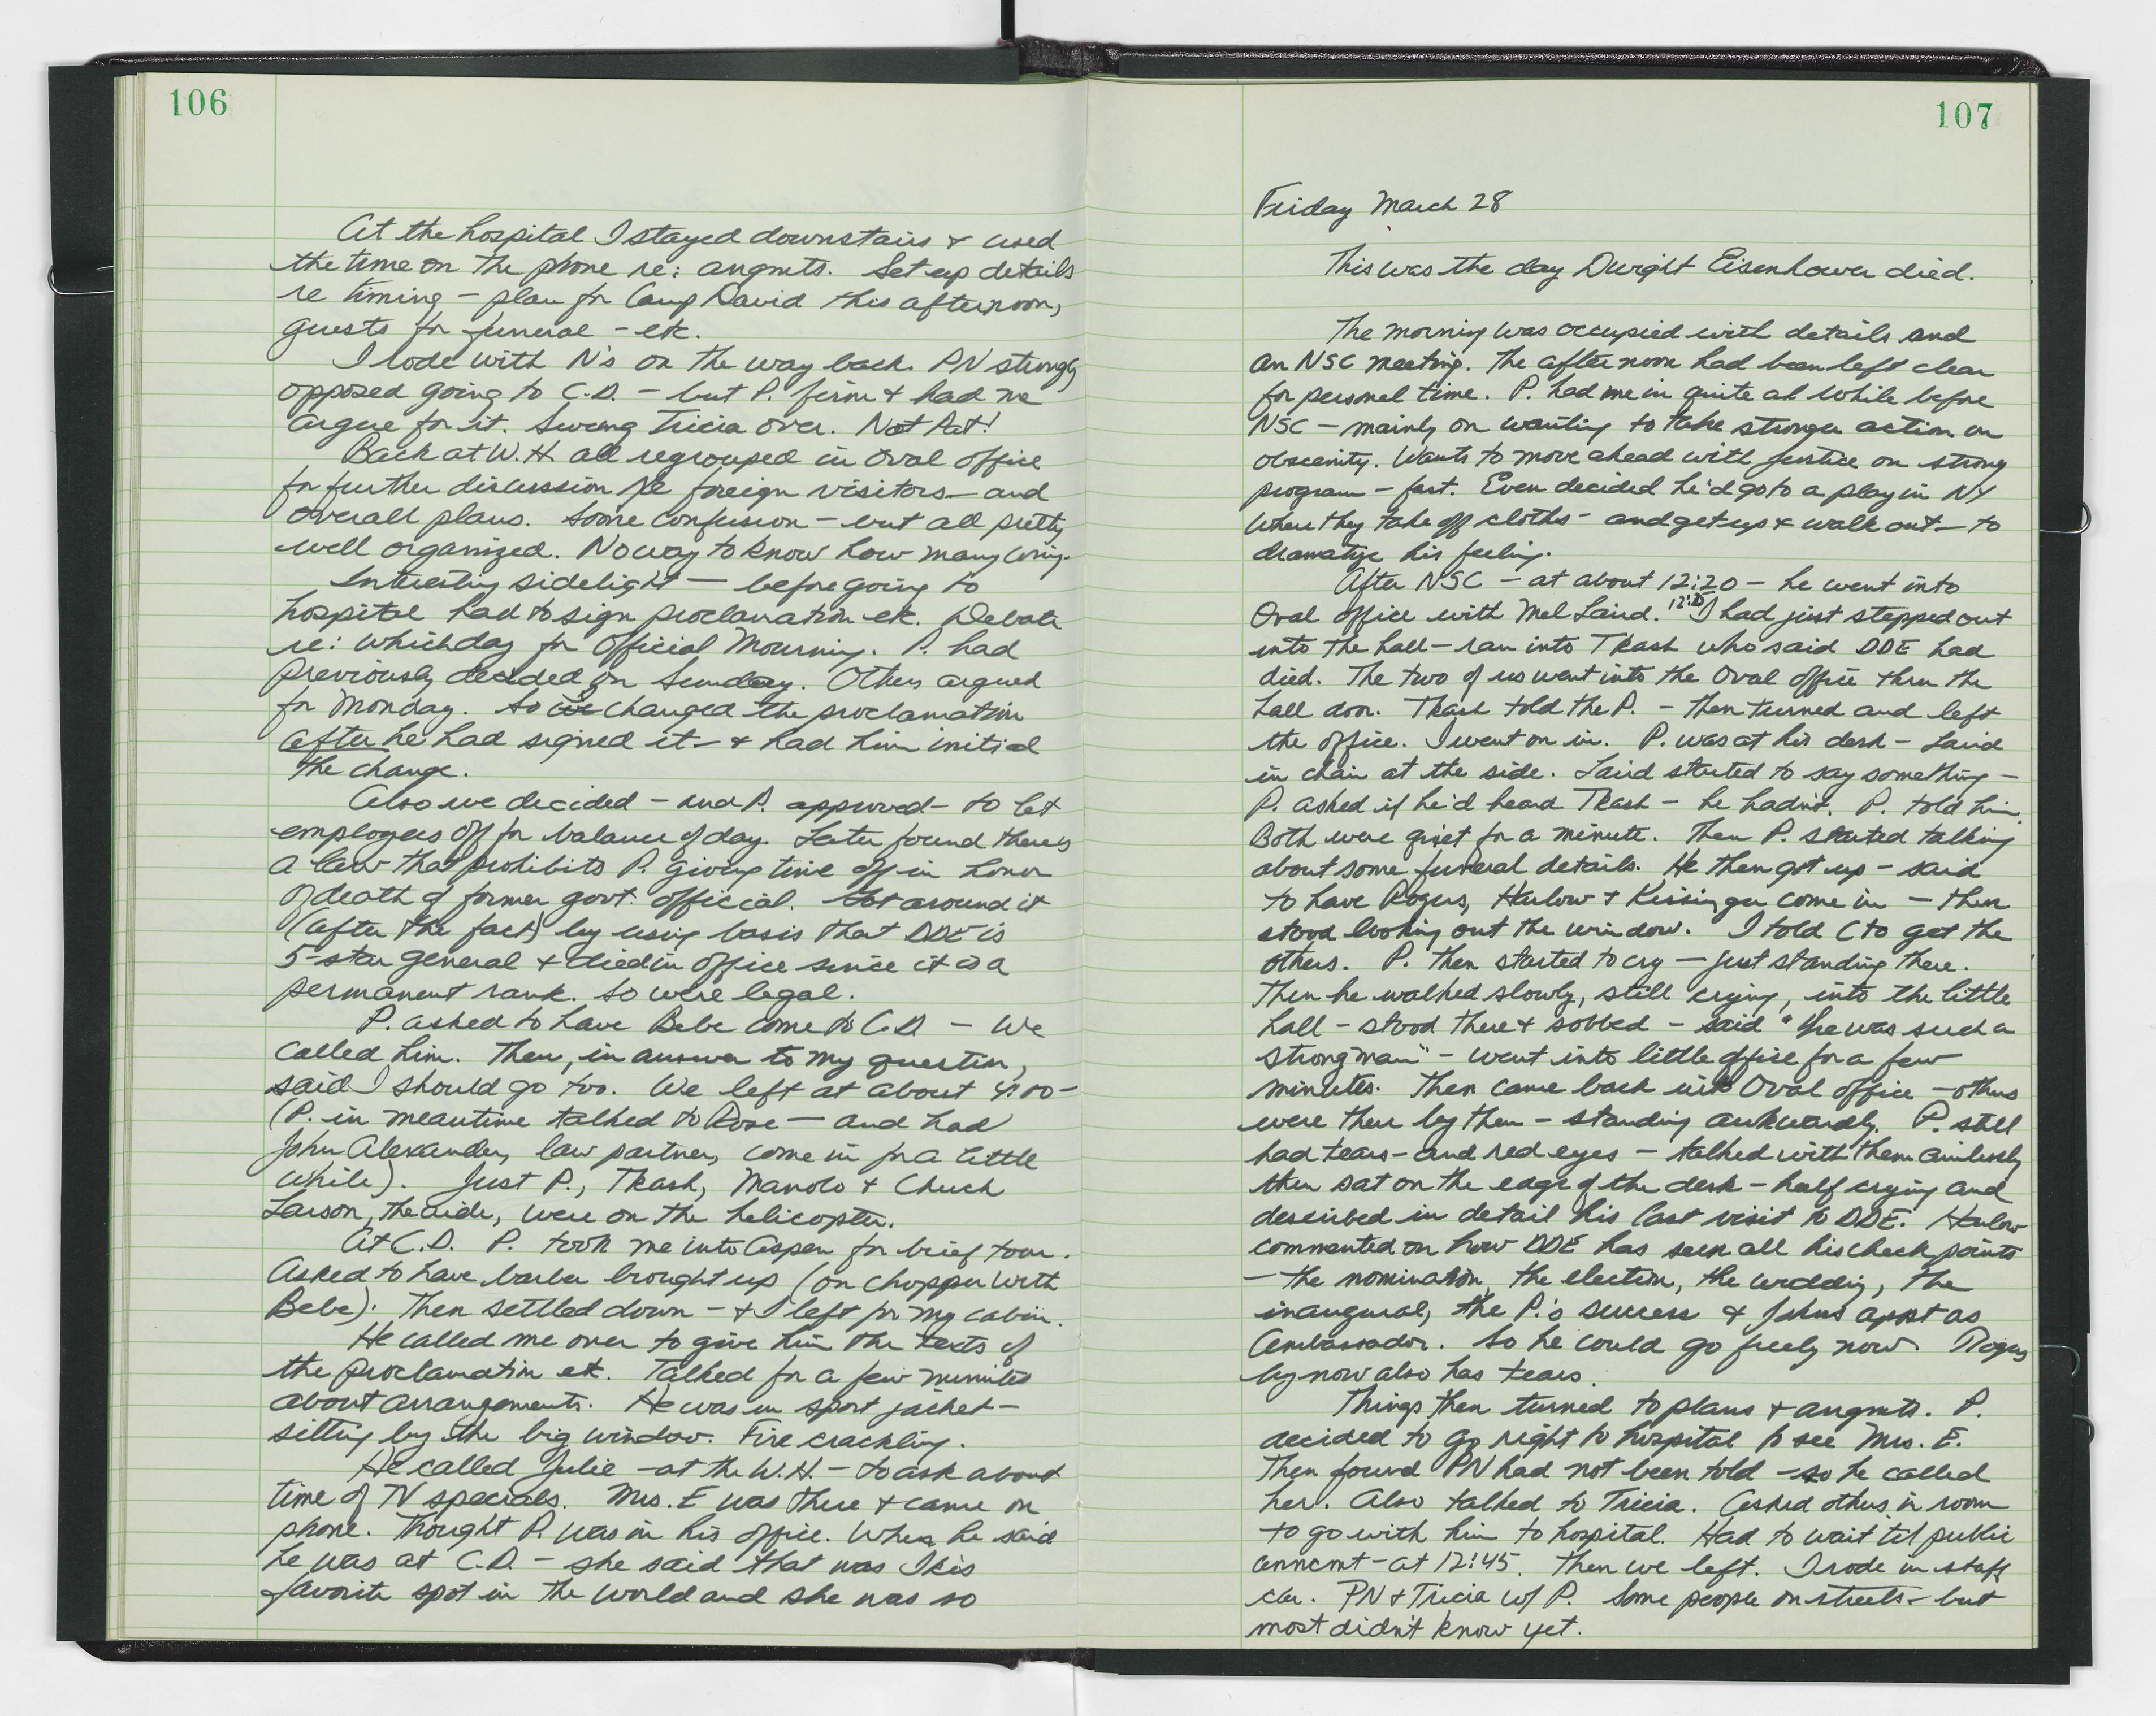 106
At the hospital I stayed downstairs & used
the time on the phone re: angmts. Set up details
re timing - plan for Camp David this afternoon,
guests for funeral - etc.
I rode with N's on the way back. PN strongly
opposed going to C.D. - but P. firm & had me
argue for it. Swung Tricia over. Not Pat!
Back at W.H. all regrouped in Oval office
for further discussion re foreign visitors - and
overall plans. Some confusion - but all pretty
well organized. No way to know how many
Interesting sidelight - before going to
hospital had to sign proclamation etc. Debate
re: which day for Official Mourning. P. had
previously decided on Sunday. Others argued
for Monday. So we changed the proclamation
after he had signed it - & had him initial
the change.
Also we decided - and P. approved - to let
employees off for balance of day. Later found there's
a law that prohibits P. giving time off in honor
of death of former govt. official. Got around it
(after the fact) by using basis that DDE is
5-star general & died in office since it is a
permanent rank. So we're legal.
P. asked to have Bebe come to C.D. - We
called him. Then, in answer to my question,
said I should go too. We left at about 4:00 -
(P. in meantime talked to Rose - and had
John Alexander, law partner, come in for a little
while). Just P., Tkash, Manolo & Chuck
Larson, the aide, were on the helicopter.
At C.D. P. took me into Aspen for brief tour.
Asked to have barber brought up (on chopper with
Bebe). Then settled down - & I left for my cabin.
He called me over to give him the texts of
the proclamation etc. Talked for a few minutes
about arrangements. He was in sport jacket -
sitting by the big window. Fire crackling.
He called Julie - at the W.H. - to ask about
time of TV specials. Mrs. E was there & came on
phone. Thought P. was in his office. When he said
he was at C.D. - she said that was Ikes
favorite spot in the world and she was so
107
Friday March 28
This was the day Dwight Eisenhower died.
The morning was occupied with details and
an NSC meeting. The afternoon had been left clear
for personal time. P. had me in quite a while before
NSC - mainly on wanting to take stronger action on
obscenity. Wants to move ahead with Justice on strong
program - fast. Even decided he'd go to a play in NY
where they take off cloths - and get up & walk out - to
dramatize his feeling.
After NSC - at about 12:20 - he went into
Oval office with Mel Laird. I had just stepped out
into the hall - ran into Tkash who said DDE had
died. The two of us went into the Oval office thru the
hall door. Tkash told the P. - then turned and left
the office. I went on in. P. was at his desk - Laird
in chair at the side. Laird started to say something -
P. asked if he'd heard Tkash - he hadn't. P. told him
Both were quiet for a minute. Then P. started talking
about some funeral details. He then got up - said
to have Rogers, Harlow & Kissinger come in - then
stood looking out the window. I told C to get the
others. P. then started to cry - just standing there.
Then he walked slowly, still crying, into the little
hall - stood there & sobbed - said "he was such a
strong man" - went into little office for a few
minutes. Then came back into Oval office - others
were there by then - standing awkwardly. P. still
had tears - and red eyes - talked with them aimlessly
then sat on the edge of the desk - half crying and
described in detail his last visit to DDE. Harlow
commented on how DDE has seen all his check points
- the nomination, the election, the wedding, the
inaugural, the P.'s success & Johns appt as
Ambassador. So he could go freely now. Rogers
by now also has tears.
Things then turned to plans & angmts. P.
decided to go right to hospital to see Mrs. E.
Then found PN had not been told - so he called
her. Also talked to Tricia. Asked others in room
to go with him to hospital. Had to wait til public
anncmt - at 12:45. Then we left. I rode in staff
car. PN & Tricia w/ P. Some people on streets - but
most didn't know yet.